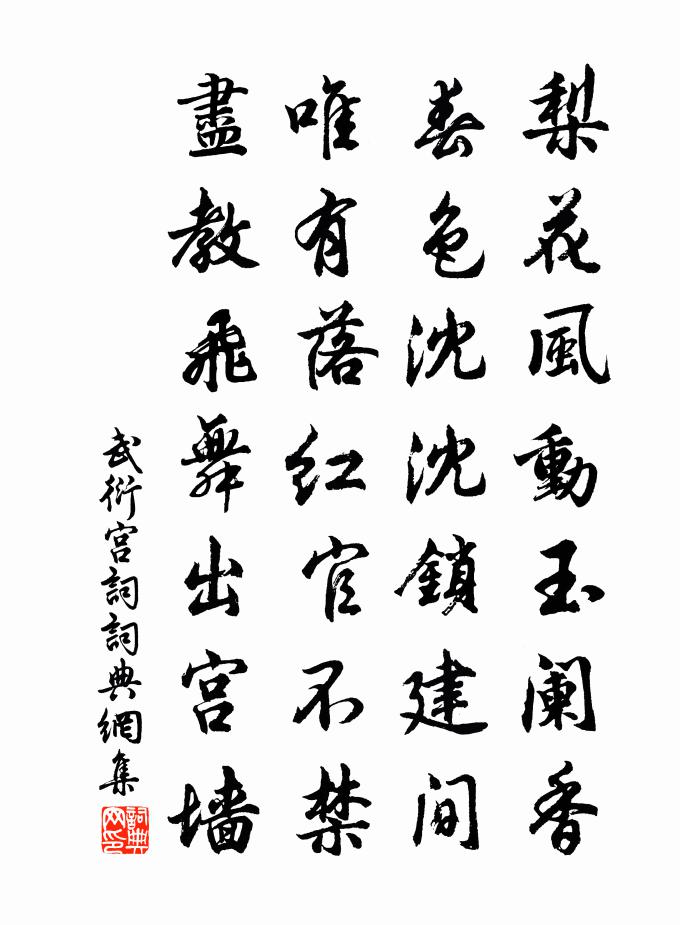 梨花風動玉阑香
春色沈沈鎖建间
唯有落红官不禁
盡教飛舞出宮墙
武衍宮詞詞典網集
詞典网印